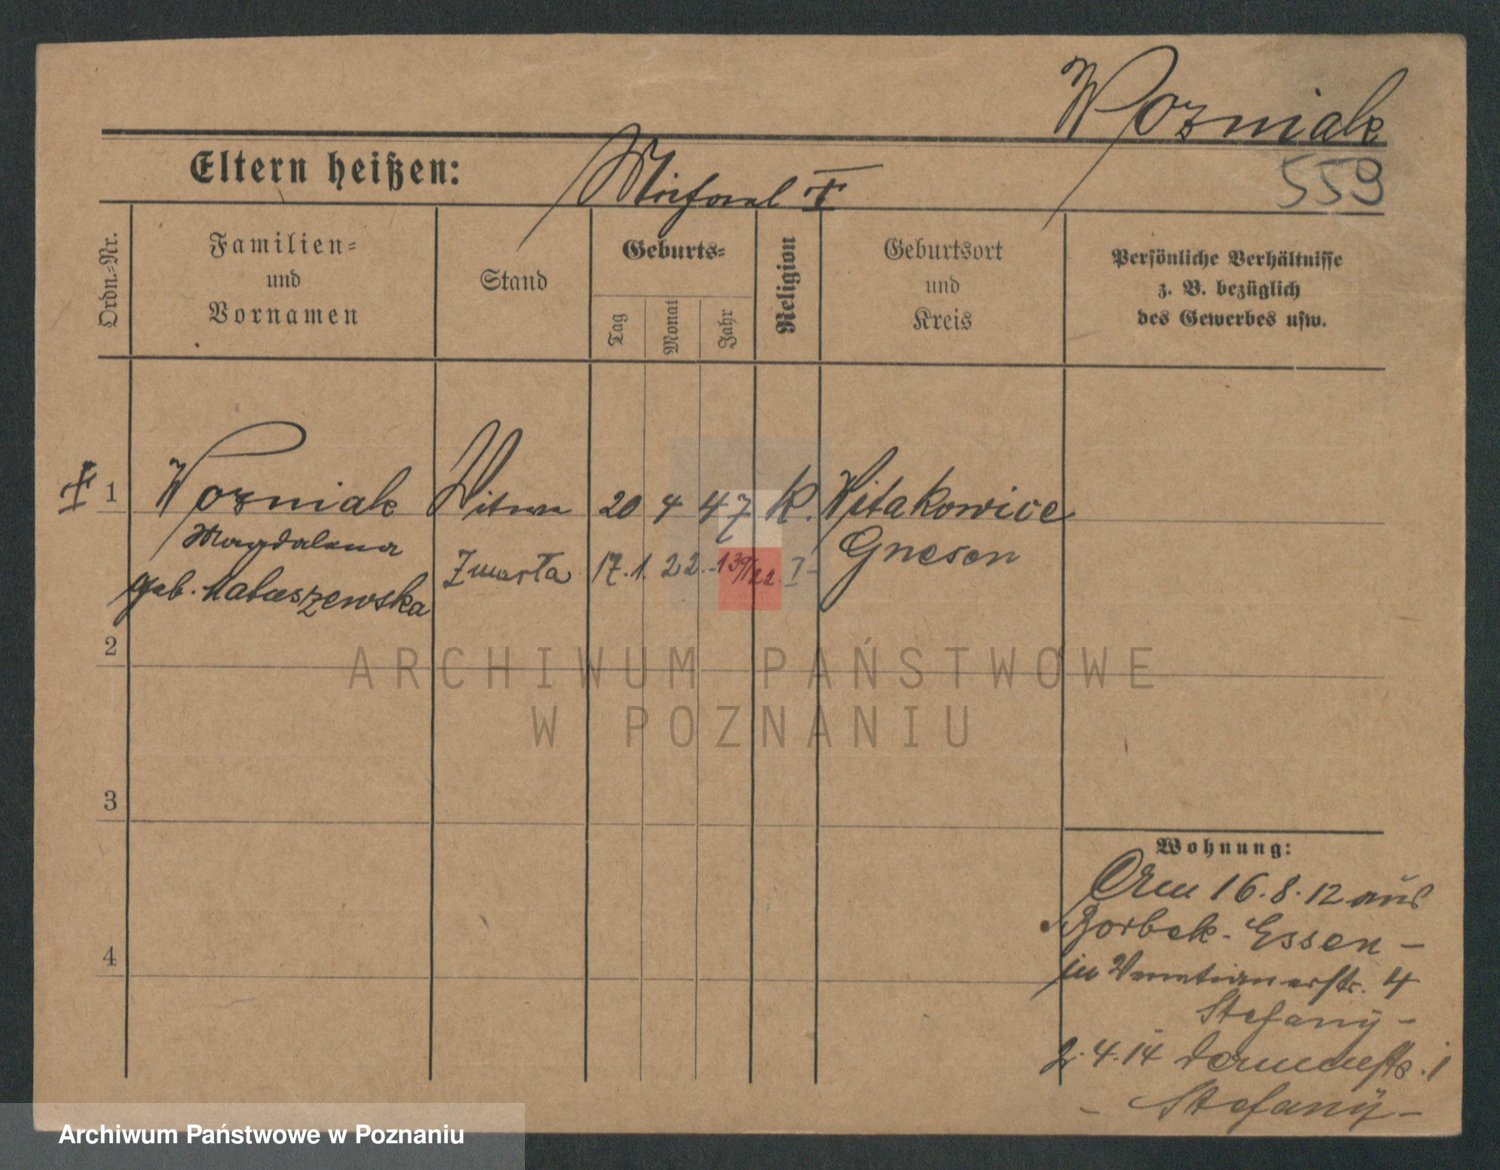 Wozniak
559
Eltern heißen:
Ordn.-Nr.
Familien-
und
Vornamen
Stand
Geburts-
Tag
Monat
Jahr
Religion
Geburtsort
und
Kreis
Persönliche Verhältnisse
z. B. bezüglich
des Gewerbes usw.
1
Wozniak Witwe 20 4 47 K. Witakowice
Magdalena Gnesen
Zmarła 17.1.22. 139/22. I
geb. Matuszewska
2
3
4
Wohnung:
Am 16.8.12 aus
Borbek-Essen-
in Venetianerstr. 4
Stefany-
2.4.14 Dammstr. 1
- Stefany-
ARCHIWUM PAŃSTWOWE
W POZNANIU
Archiwum Państwowe w Poznaniu